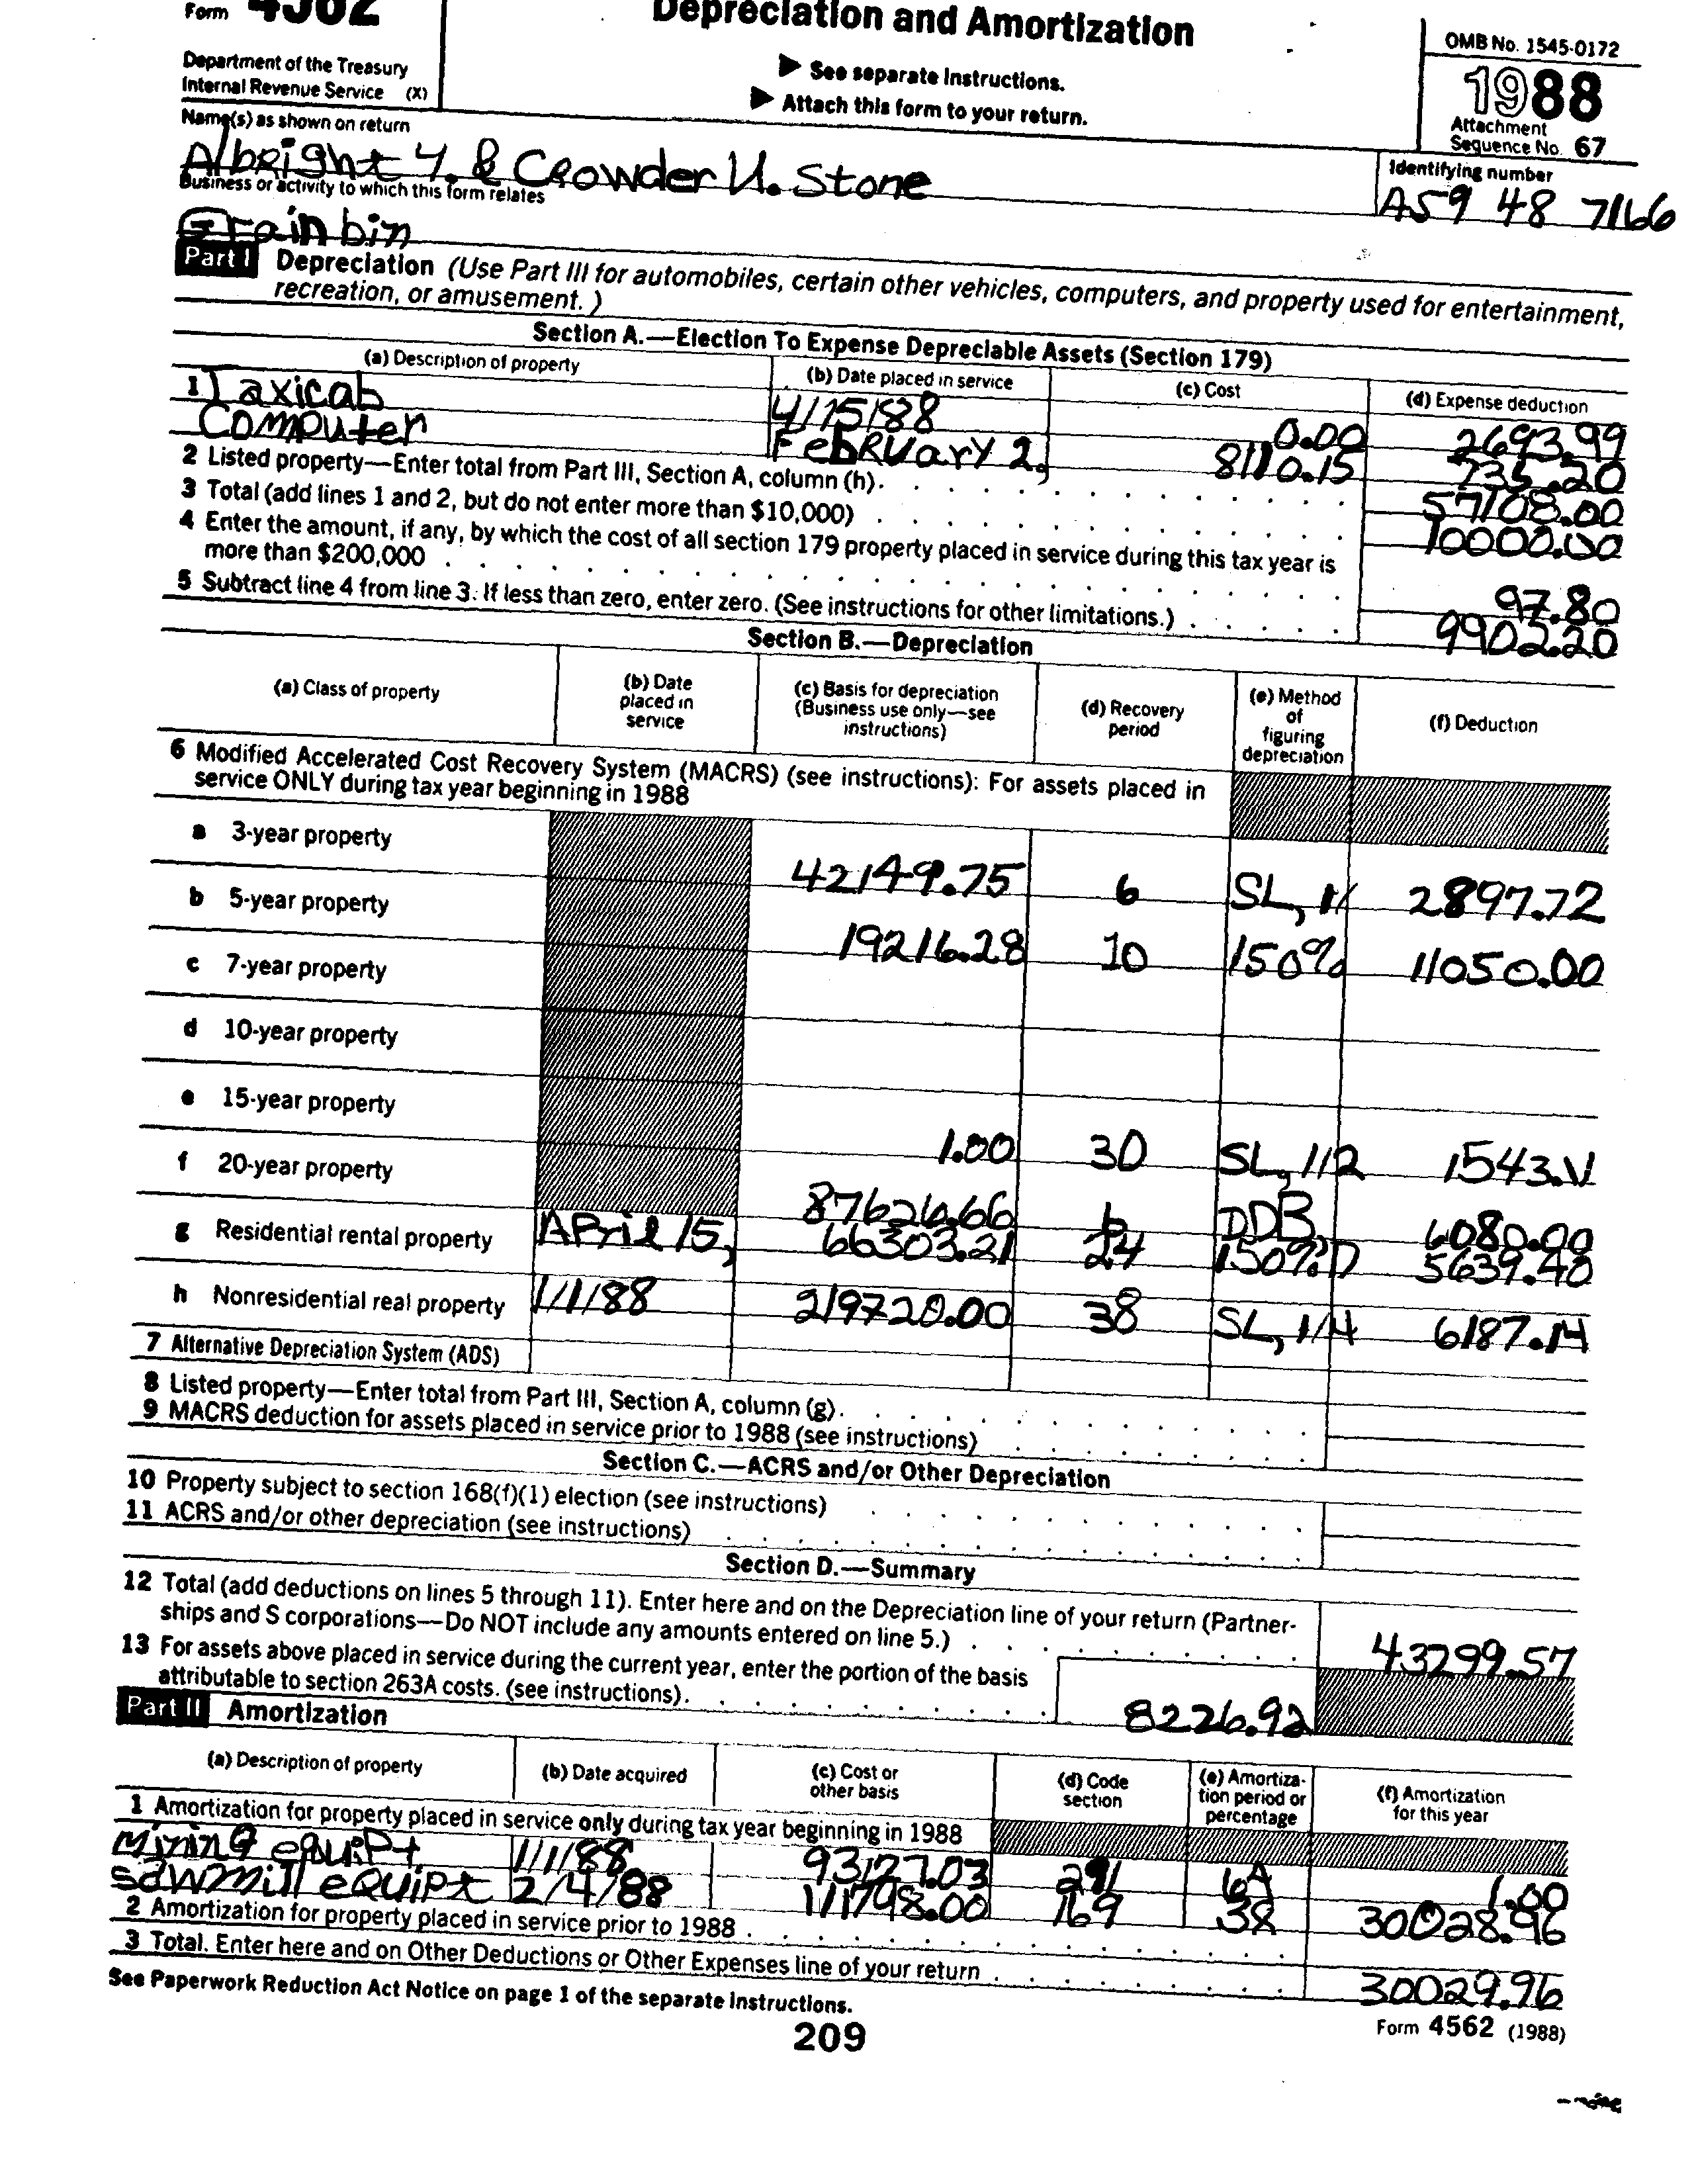 Form 4562
Depreciation and Amortization
OMB No. 1545-0172
Department of the Treasury
Internal Revenue Service (X)
► See separate Instructions.
► Attach this form to your return.
1988
Attachment
Sequence No. 67
Name(s) as shown on return
Albright Y. & Crowder U. Stone
Identifying number
A59 48 7166
Business or activity to which this form relates
Grain bin
Part I Depreciation (Use Part III for automobiles, certain other vehicles, computers, and property used for entertainment,
recreation, or amusement.)
Section A.—Election To Expense Depreciable Assets (Section 179)
(a) Description of property (b) Date placed in service (c) Cost (d) Expense deduction
1 Taxicab 4/15/88 0.00 2693.99
Computer February 2, 8110.15 735.20
2 Listed property—Enter total from Part III, Section A, column (h). 57108.00
3 Total (add lines 1 and 2, but do not enter more than $10,000) 10000.00
4 Enter the amount, if any, by which the cost of all section 179 property placed in service during this tax year is
more than $200,000 97.80
5 Subtract line 4 from line 3. If less than zero, enter zero. (See instructions for other limitations.) 9902.20
Section B.—Depreciation
(a) Class of property (b) Date placed in service (c) Basis for depreciation (Business use only—see instructions) (d) Recovery period (e) Method of figuring depreciation (f) Deduction
6 Modified Accelerated Cost Recovery System (MACRS) (see instructions): For assets placed in
service ONLY during tax year beginning in 1988
a 3-year property
b 5-year property 42149.75 6 SL, 2897.72
c 7-year property 19216.28 10 150% 11050.00
d 10-year property
e 15-year property
f 20-year property 1.00 30 SL, 1/2 1543.
87626.66 DDB, 6080.00
g Residential rental property April 15, 66303.21 24 150% D 5639.40
h Nonresidential real property 1/1/88 219720.00 38 SL, 1/4 6187.14
7 Alternative Depreciation System (ADS)
8 Listed property—Enter total from Part III, Section A, column (g).
9 MACRS deduction for assets placed in service prior to 1988 (see instructions)
Section C.—ACRS and/or Other Depreciation
10 Property subject to section 168(f)(1) election (see instructions)
11 ACRS and/or other depreciation (see instructions)
Section D.—Summary
12 Total (add deductions on lines 5 through 11). Enter here and on the Depreciation line of your return (Partner-
ships and S corporations—Do NOT include any amounts entered on line 5.) 43299.57
13 For assets above placed in service during the current year, enter the portion of the basis
attributable to section 263A costs. (see instructions). 8226.92
Part II Amortization
(a) Description of property (b) Date acquired (c) Cost or other basis (d) Code section (e) Amortiza-tion period or percentage (f) Amortization for this year
1 Amortization for property placed in service only during tax year beginning in 1988
Mining equipt 1/1/88 93127.03 291 6A 1.00
Sawmill equipt 2/4/88 111798.00 169 38 30028.96
2 Amortization for property placed in service prior to 1988
3 Total. Enter here and on Other Deductions or Other Expenses line of your return 30029.96
See Paperwork Reduction Act Notice on page 1 of the separate Instructions.
Form 4562 (1988)
209